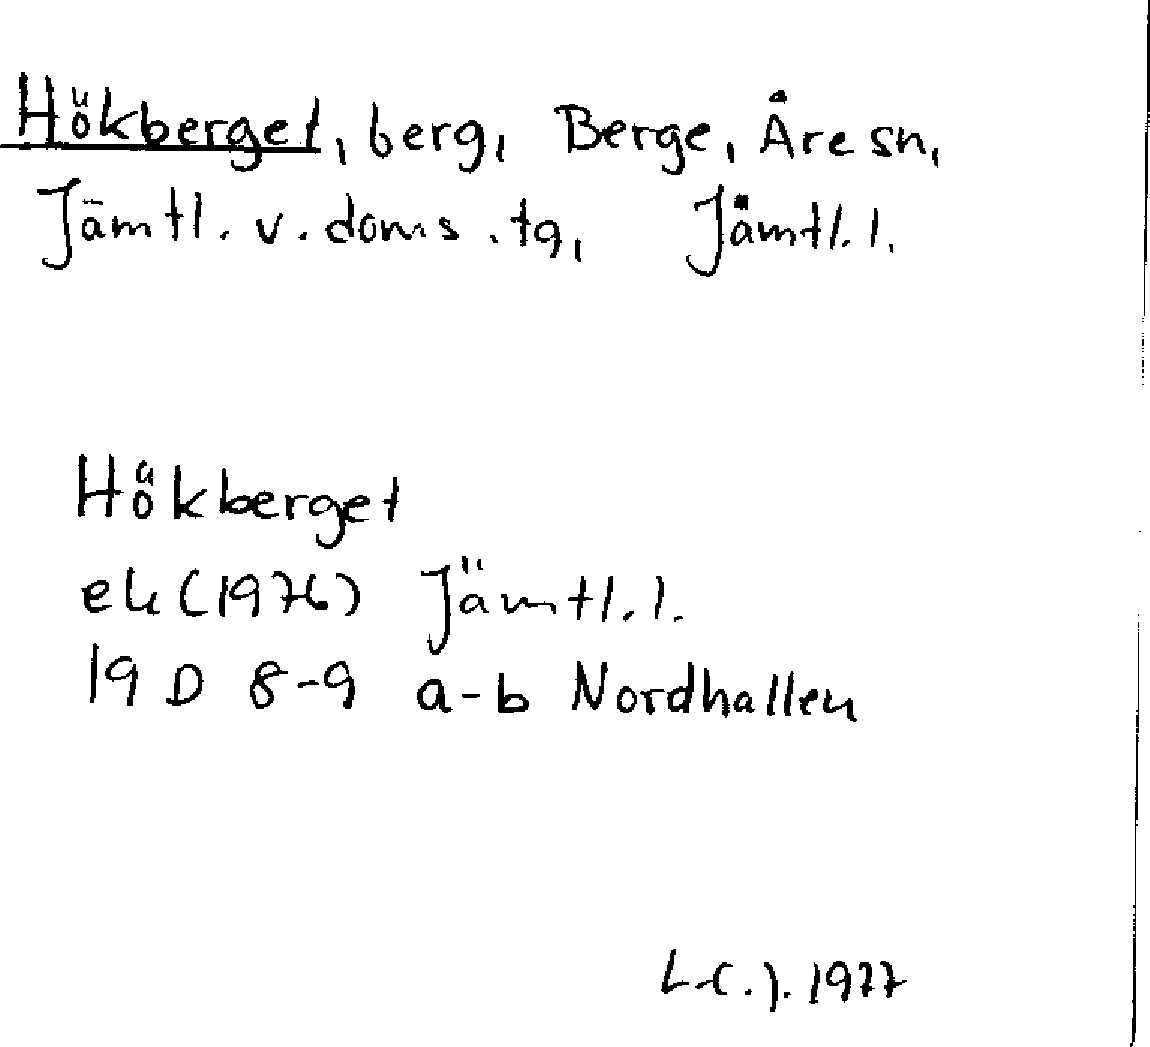 Hökberget, berg, Berge, Åre sn,
Jämtl. v. doms. tg, Jämtl. l.
Hökberget
ek (1976) Jämtl. l.
19 D 8-9 a-b Nordhallen
L-C. J. 1977